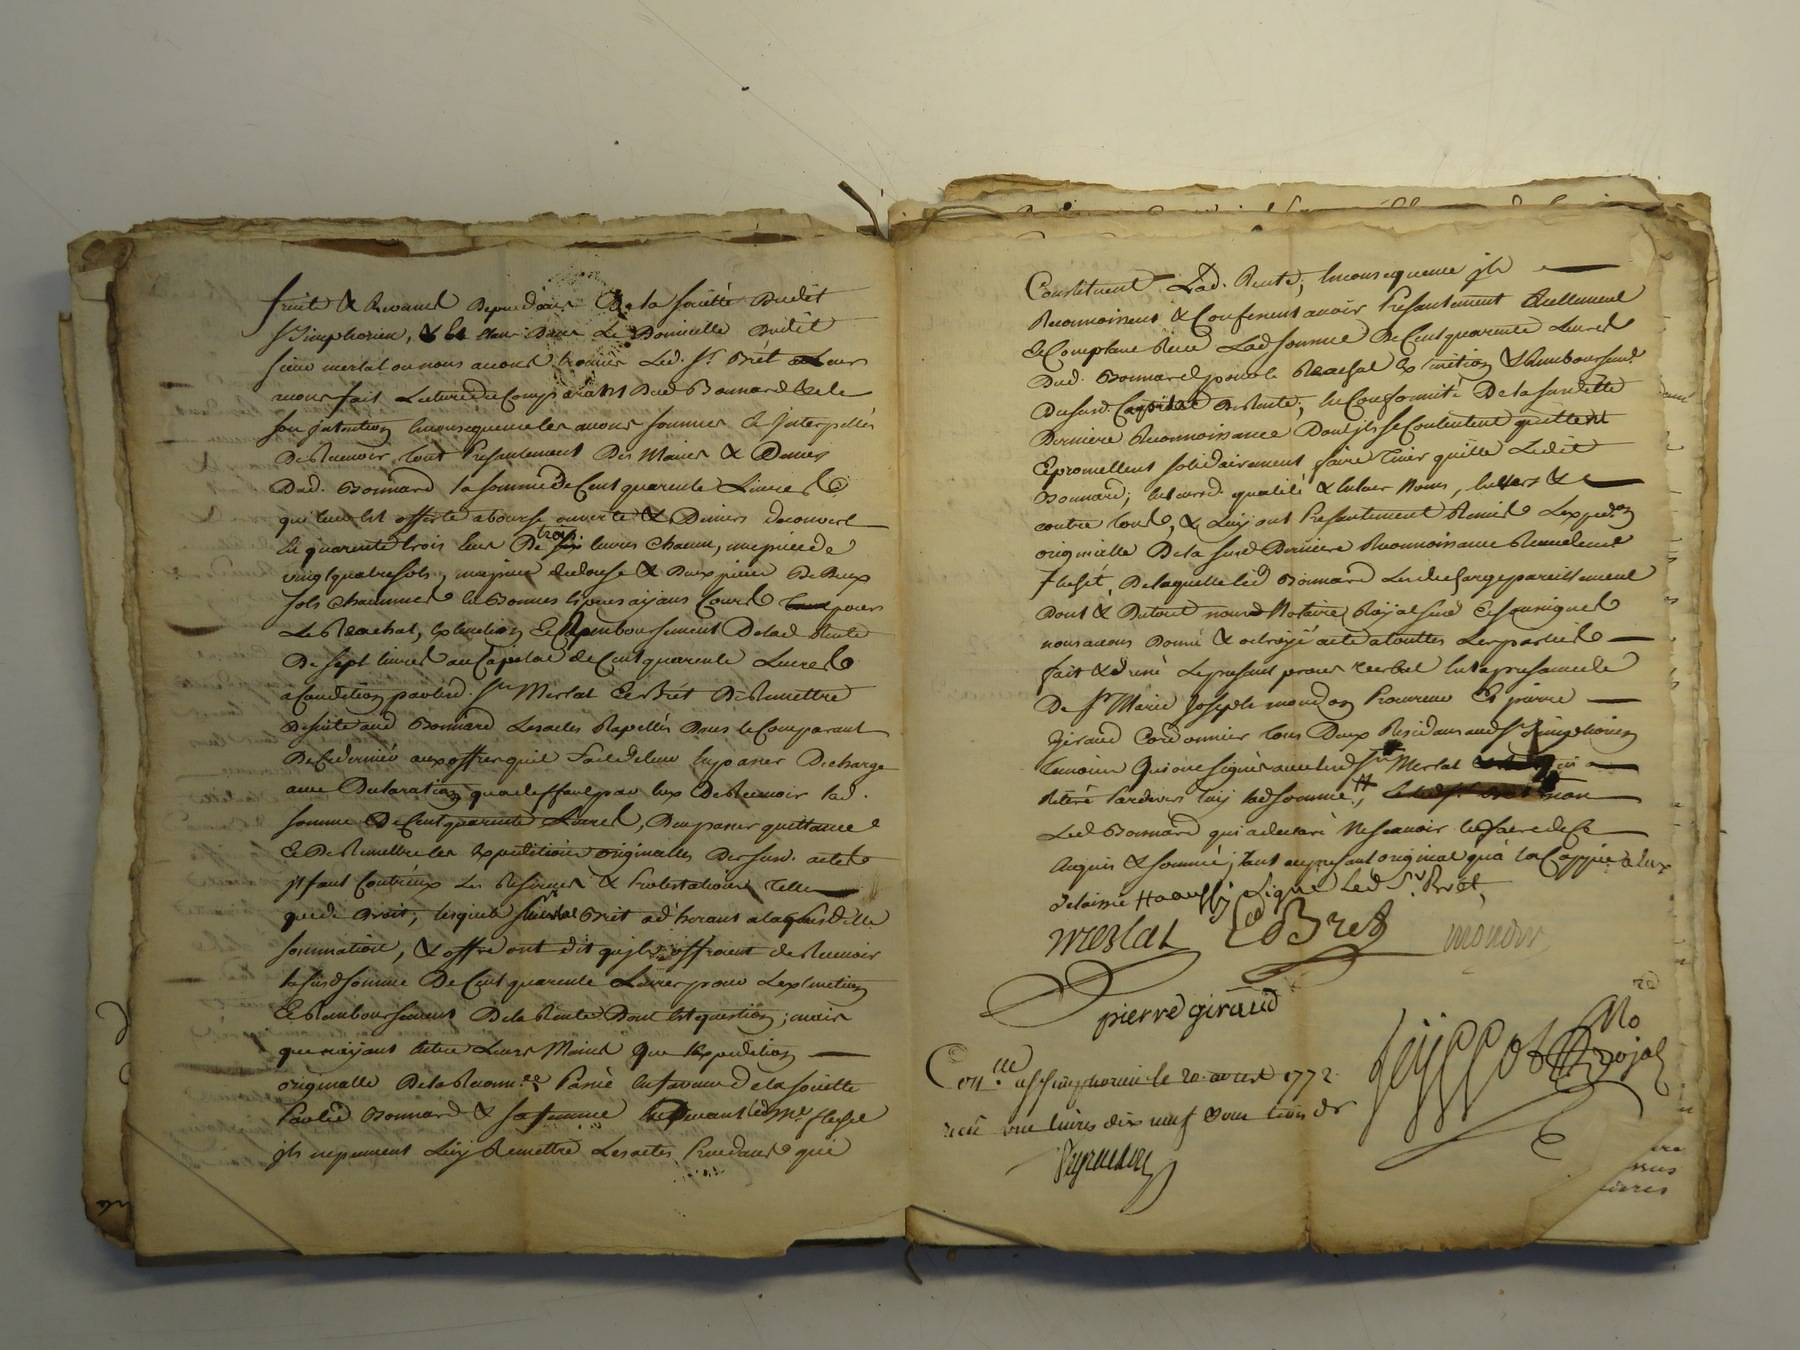 fruits & Revenus Dependans De la société Dudit
St Simphorien, & les dans Le Domicille Dudit
sieur merlat ou nous avons trouvés Led. Sr Brét
avons fait Lecture du Comparant Dud Bonnard & de
son jntention En consequence les avons sommés & jnterpellés
De Recevoir tout Presentement Des Mains & Deniers
Dud. Bonnard la somme De Cent quarente Livres
qui leur Est offerte a bourse ouverte & Deniers decouvert
En quarente trois Ecus De trois livres chacun, une piece de
vingt quatre sols, une piece de douse & Deux pieces De Deux
sols chacunne En Bonnes Especes ayans Cours pour
Le Rachat, Extinction Et Remboursement De lad Rente
De sept livres au Capital de Cent quarente Livres
a Condition par led. Srs Merlat Et Brét De Remettre
De suite aud Bonnard Les actes Rapellés Dans le Comparant
De Ce dernier aux offres qu'il fait de leur En passer Decharge
avec Declaration qu'a deffaut par Eux De Recevoir lad.
somme De Cent quarente Livres, D'en passer quittance
Et De Remettre les Expeditions originalles Des susd. actes
jl fait Contreux Les Reserves & Protestations telles
que de Droit, lesquels sieurs Merlat Brét adherans a la susditte
sommation, & offre ont dit qu'jls offroient de Recevoir
la susd somme De Cent quarente Livres pour L'extinction
Et Remboursement De la Rente Dont Est question; mais
que n'ayant Entre Leurs Mains que l'Expedition
originalle De la Reconn.ce Passée En faveur de la société
Par led Bonnard & sa femme Me flesse
jls ne peuvent Luy Remettre Les actes Precedans qui
Constituent Lad. Rente, En consequence jls
Reconnoissent & Confessent avoir Presentement Reellement
Et Comptant Receu Lad somme De Cent quarente Livres
Dud. Bonnard pour le Rachat Extinction & Remboursemt
Du susd. Capital De Rente, En Conformité De la susditte
Derniere Reconnoissance Dont jls se Contentent quittent
Et promettent solidairement faire tenir quitte Ledit
Bonnard; En leursd. qualité & En leur Noms, Envers &
contre tous, & Luy ont Presentement Remis L'exped.on
originalle De la susd Derniere Reconnoissance
flesse, De laquelle led Bonnard Les decharge pareillement
Dont & Du tout nousd Notaire Royal susd Et soussigné
nous avons Donné & octroyé acte a touttes Les parties
fait & dressé Le present proces verbal En la presence
De Sr Marie Joseph mondon Et pierre
Giraud Cordonnier tous Deux Residans aud St Simphorien
temoins Qui ont signés avec led Sr Merlat
Retiré Pardevers luy lad somme, non
Led Bonnard qui a declaré Ne scavoir le faire de Ce
Requis & sommé, tant au present original qu'a la Coppie a Eux
delaissée H aussy signé Led Sr Brét,
Merlat Brét mondon
pierre giraud
Con.lle a St Simphorien le 20 avril 1772
receu une livres dix neuf sous trois d.
No royal